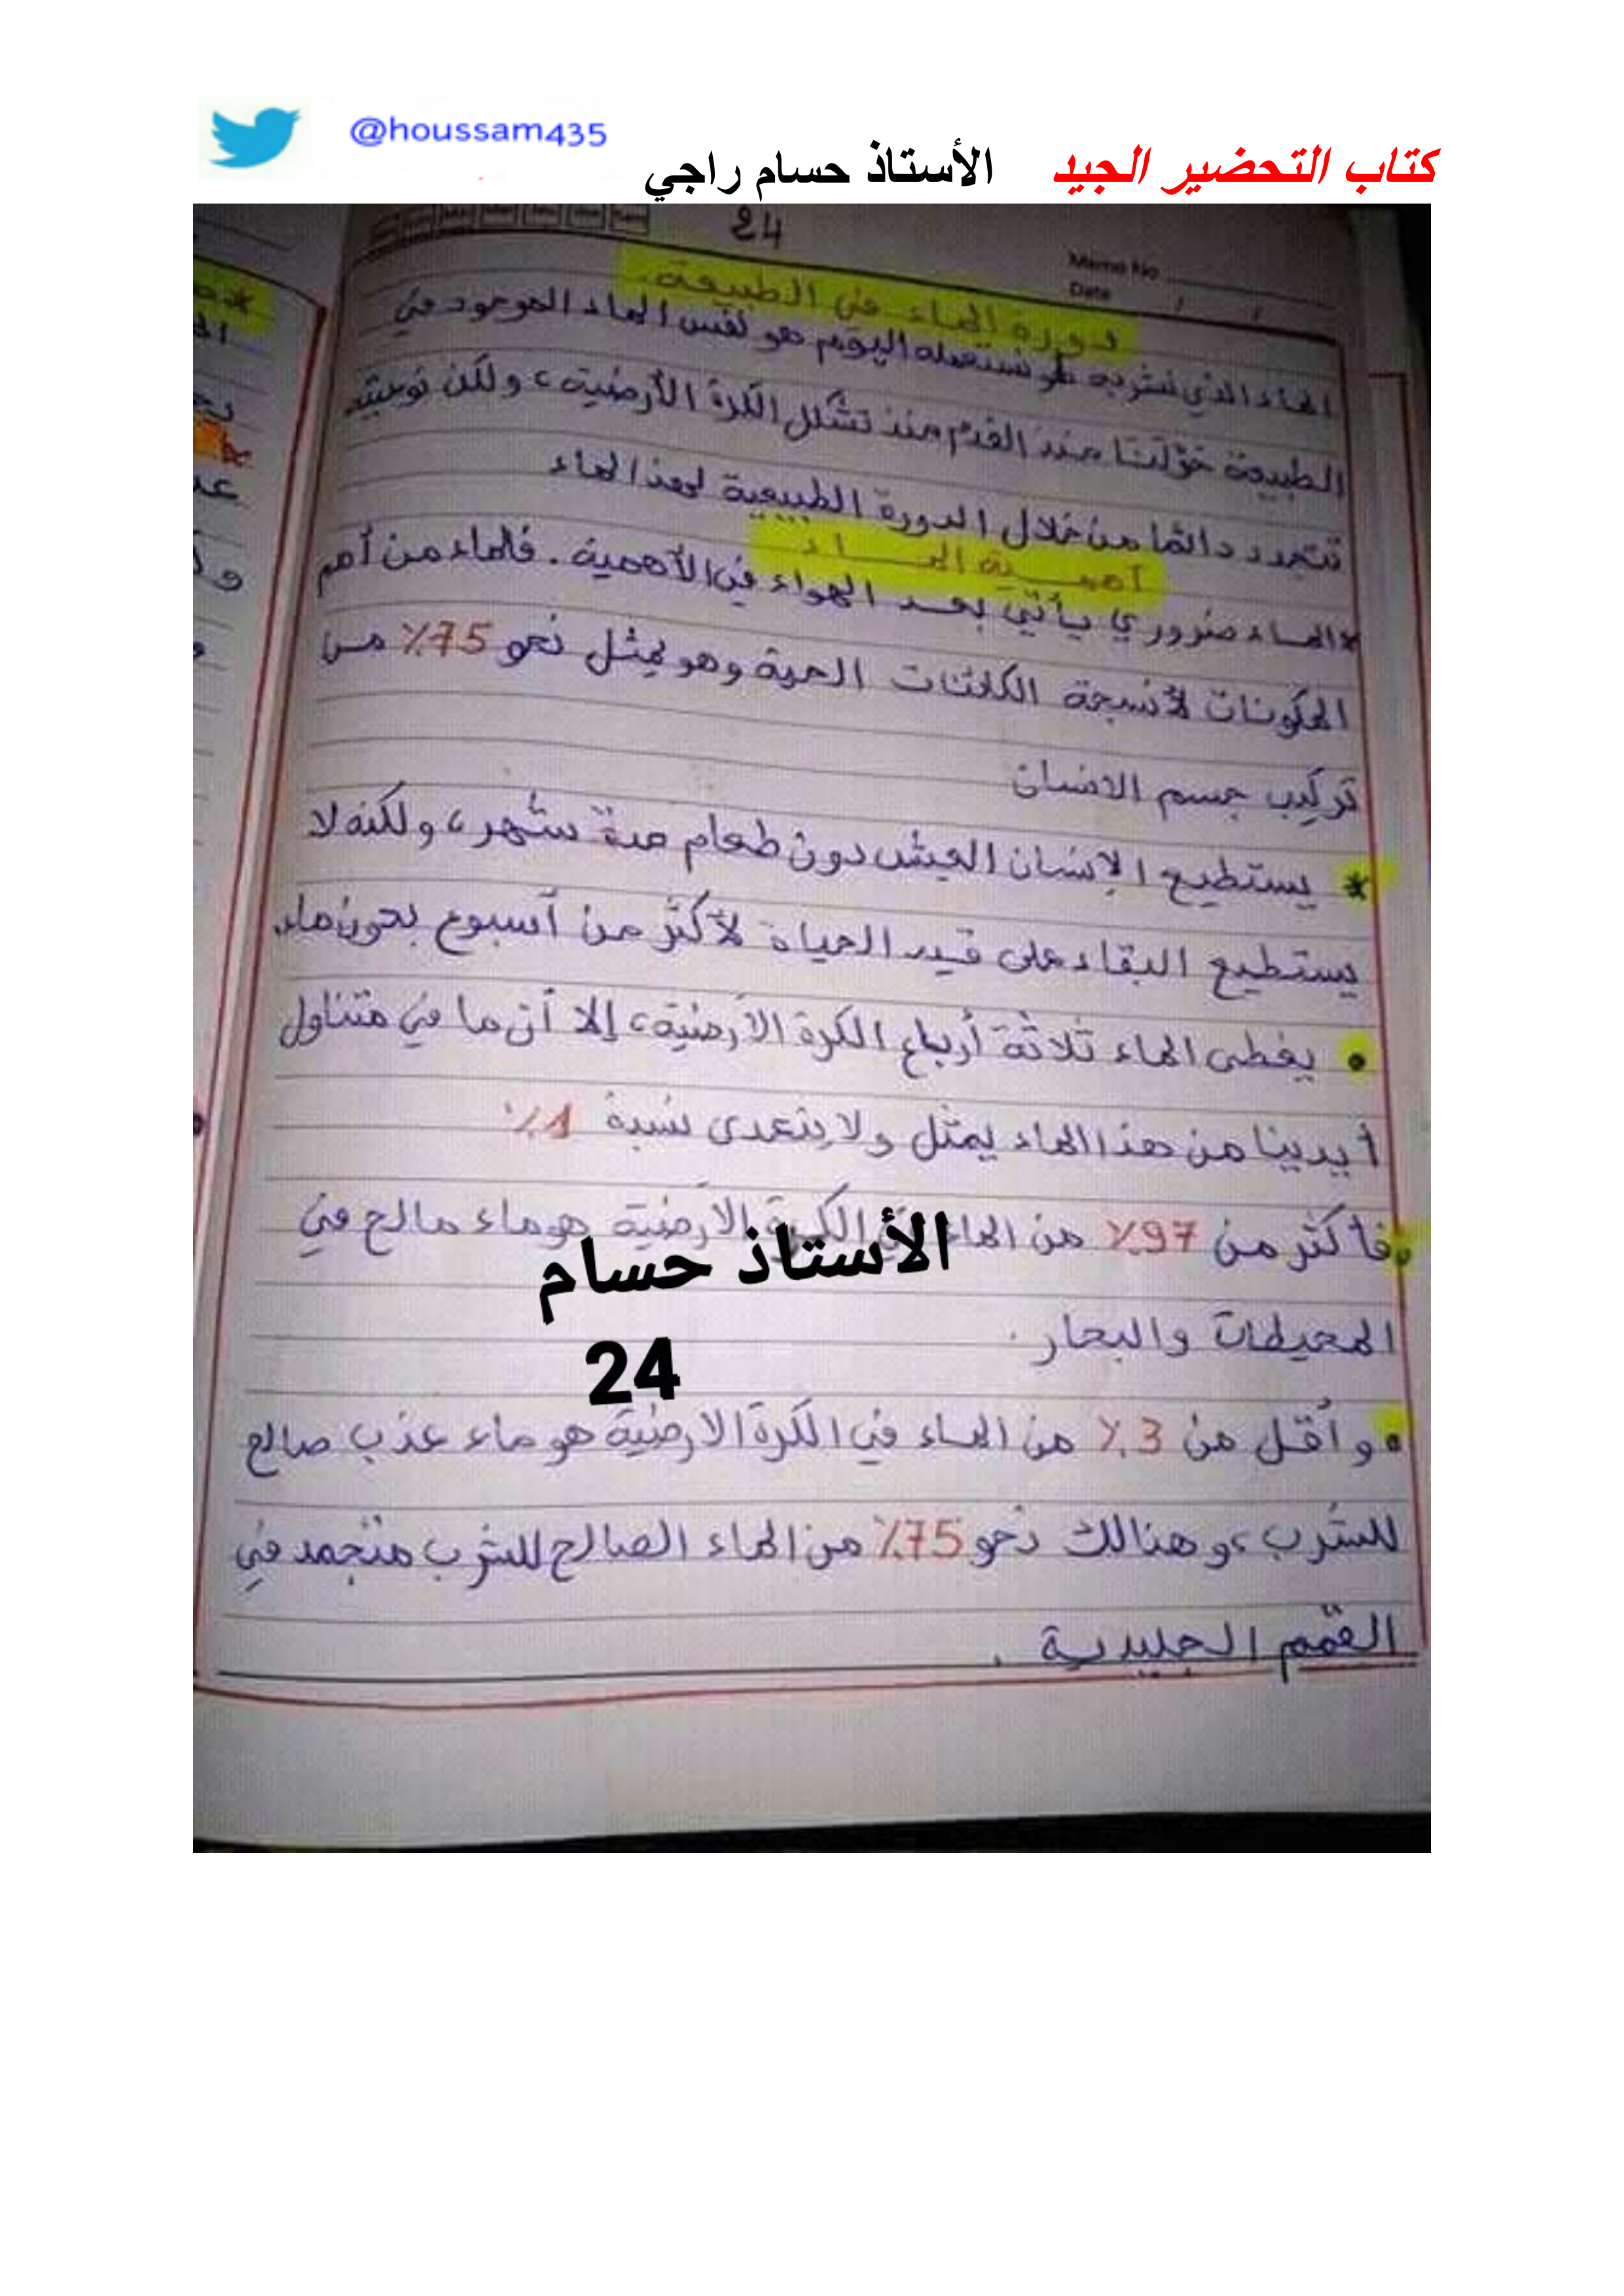 @houssam435
كتاب التحضير الجيد الأستاذ حسام راجي
24
Memo No
Date / /
دورة الماء في الطبيعة.
الماء الذي نشربه أو نستعمله اليوم هو نفس الماء الموجود في
الطبيعة حولنا منذ القدم منذ تشكل الكرة الأرضية، ولكن نوعيته
تتجدد دائما من خلال الدورة الطبيعية لهذا الماء
أهمــية المــاء
* المــاء ضروري يأتي بعد الهواء في الأهمية. فالماء من أهم
المكونات لأنسجة الكائنات الحية وهو يمثل نحو 75٪ من
تركيب جسم الانسان
* يستطيع الإنسان العيش دون طعام مدة شهر، ولكنه لا
يستطيع البقاء على قيد الحياة لأكثر من أسبوع بدون ماء.
• يغطى الماء ثلاثة أرباع الكرة الأرضية، إلا أن ما في متناول
أيدينا من هذا الماء يمثل ولا يتعدى نسبة 1٪
• فأكثر من 97٪ من الماء في الكرة الأرضية هو ماء مالح في
المحيطات والبحار.
الأستاذ حسام
24
• وأقل من 3٪ من الماء في الكرة الارضية هو ماء عذب صالح
للشرب، وهنالك نحو 75٪ من الماء الصالح للشرب متجمد في
القمم الجليدية.